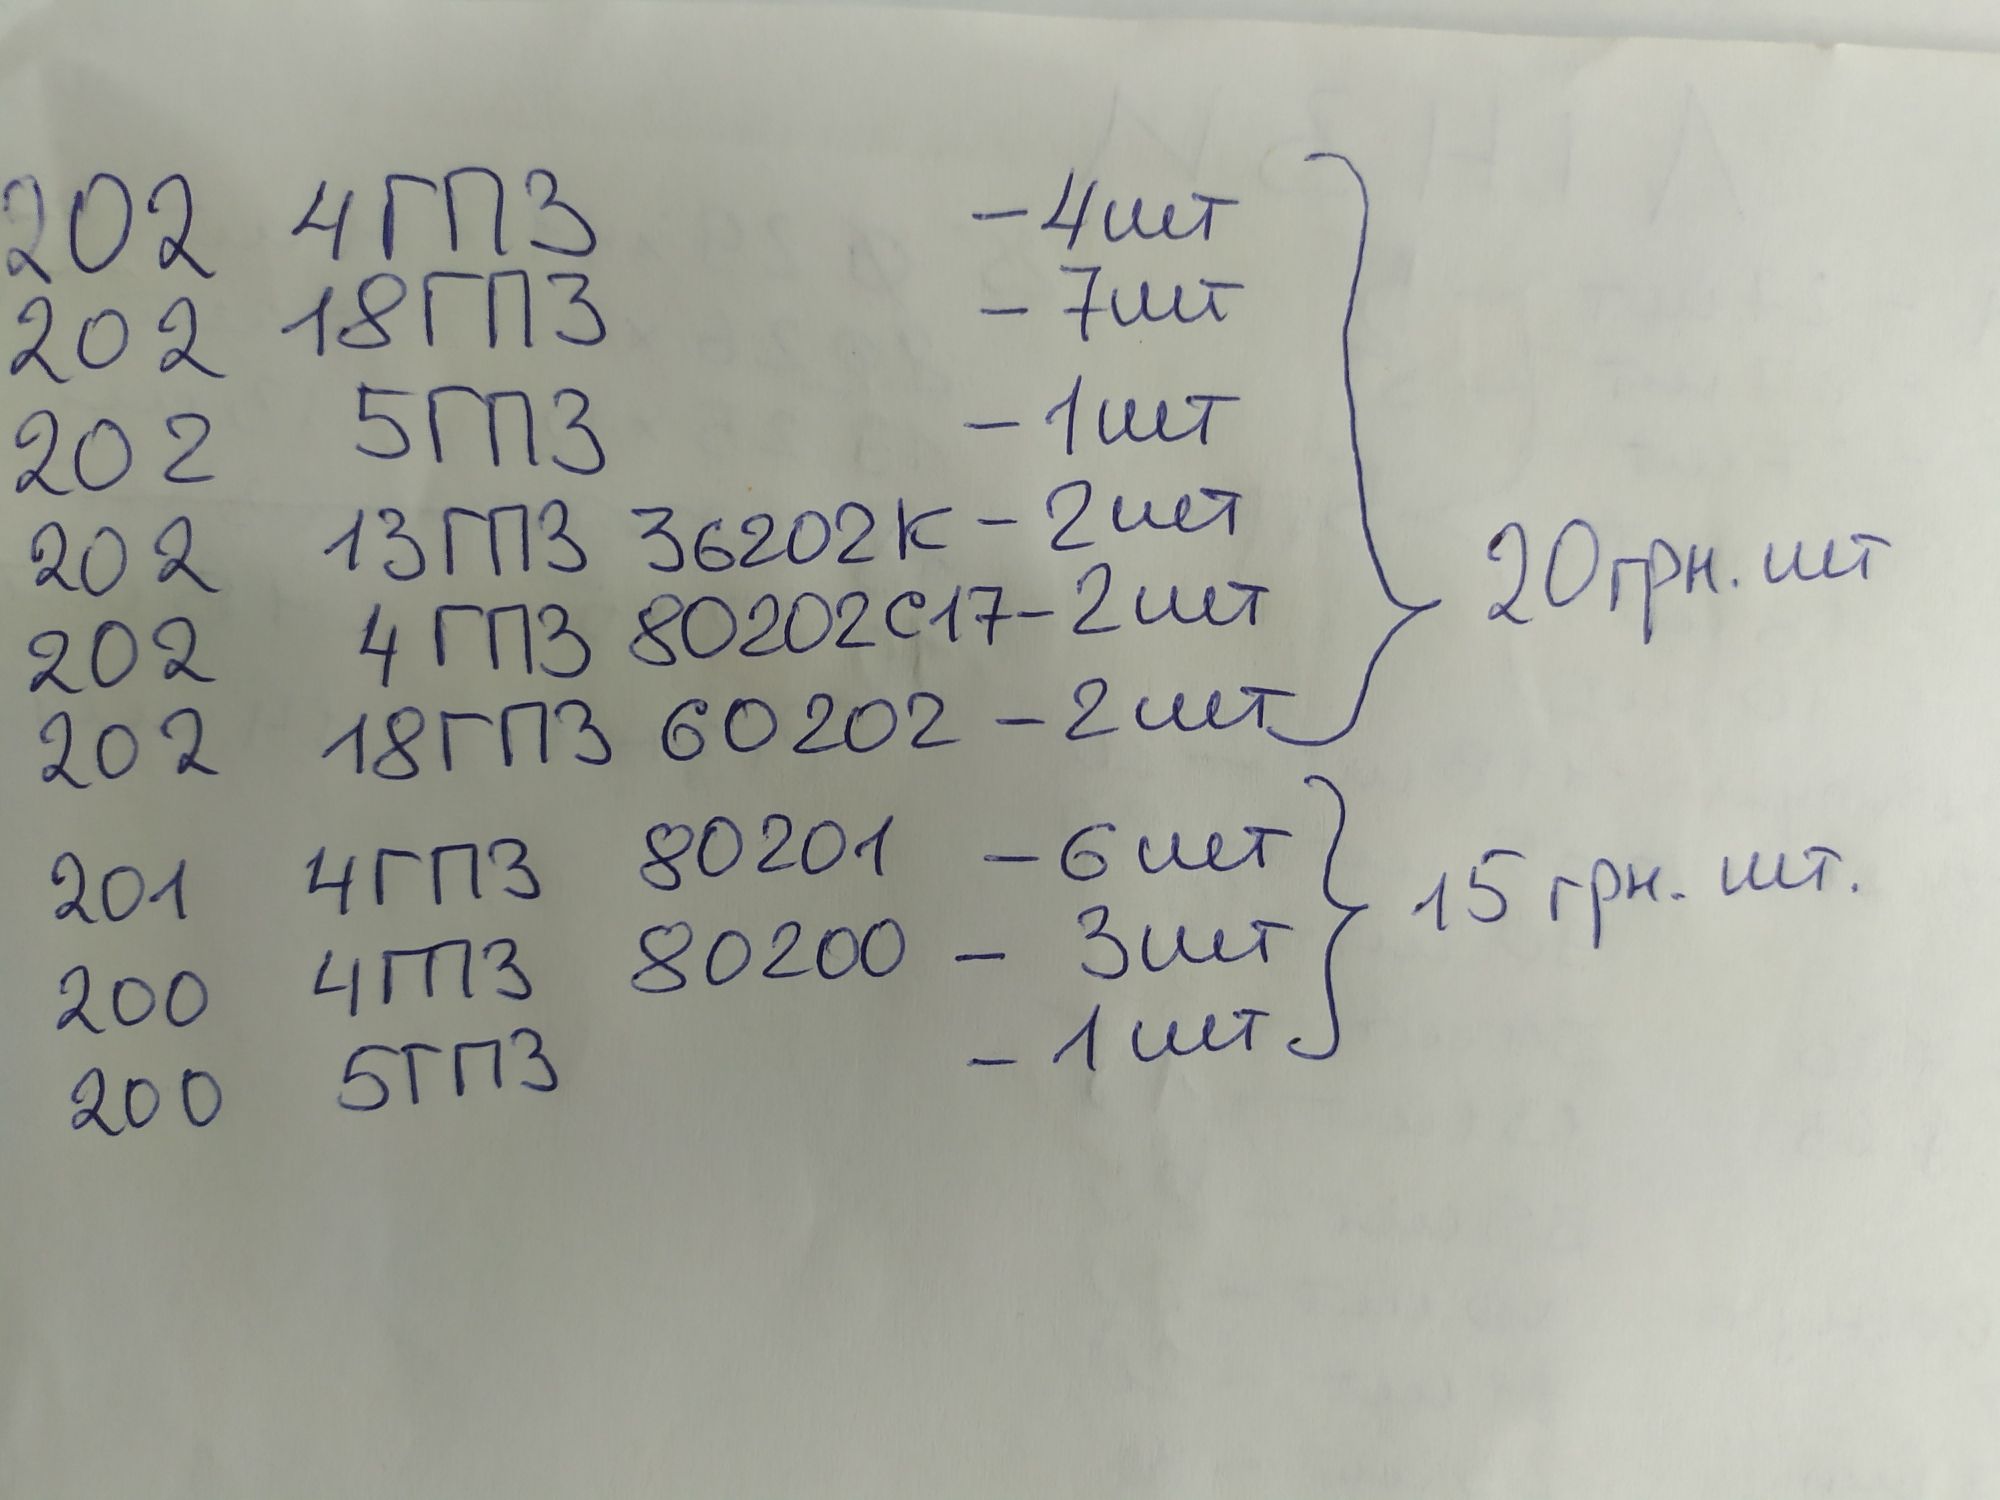 202 4ГПЗ - 4шт
202 18ГПЗ - 7шт
202 5ГПЗ - 1шт
202 13ГПЗ 36202К - 2шт
202 4ГПЗ 80202С17 - 2шт
20грн. шт
202 18ГПЗ 60202 - 2шт
201 4ГПЗ 80201 - 6шт
15 грн. шт.
200 4ГПЗ 80200 - 3шт
200 5ГПЗ - 1шт